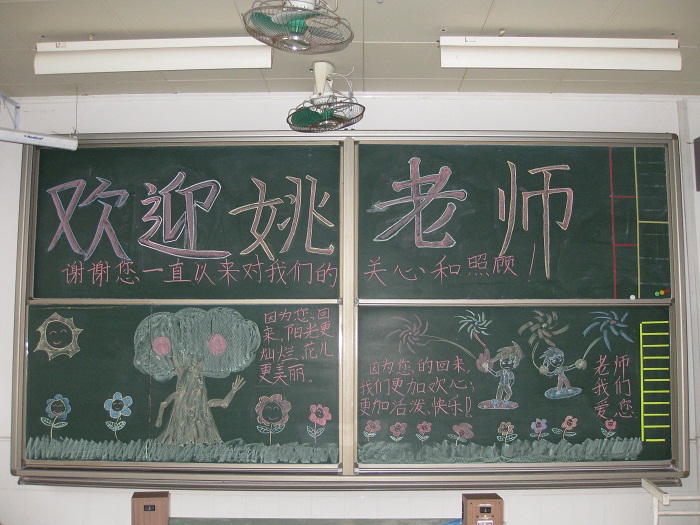 欢迎姚老师
谢谢您一直以来对我们的关心和照顾!
因为您回
来,阳光更
灿烂,花儿
更美丽。
因为您的回来,
我们更加欢心;
更加活泼、快乐!
老师
我们
爱您